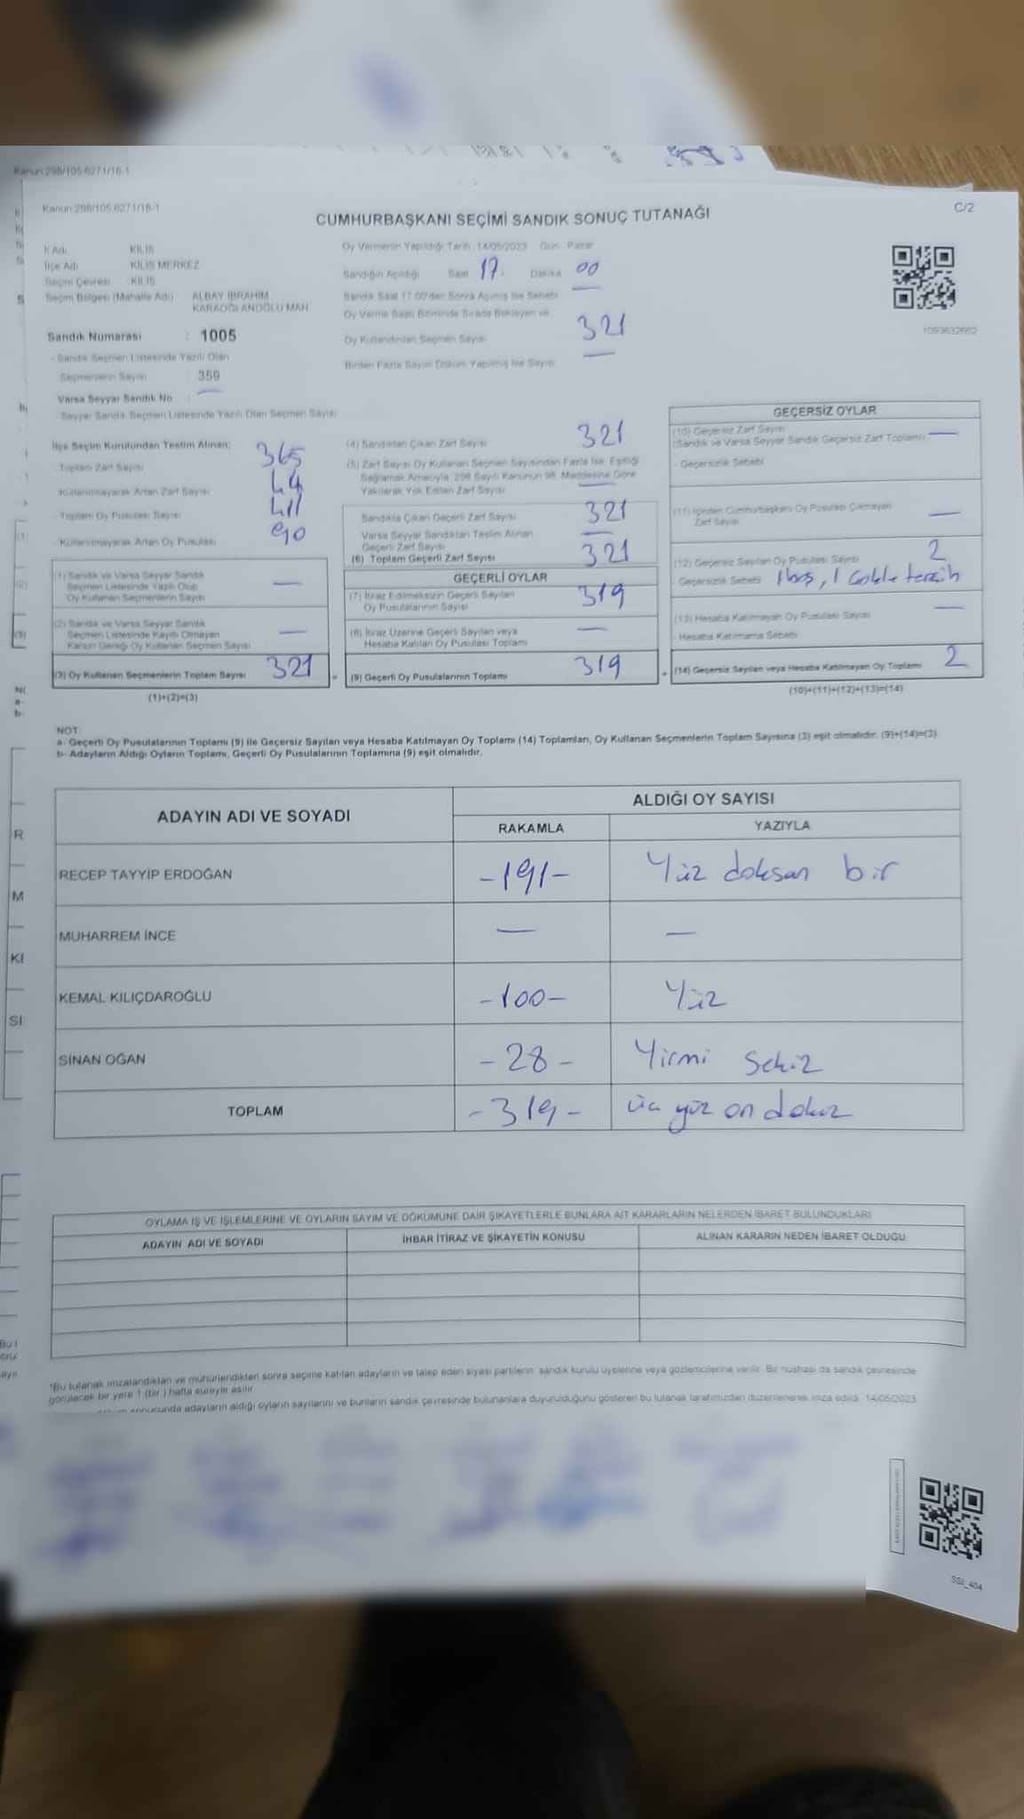 Kanun:298/105.6271/16-1
Kanun:298/105.6271/16-1
C/2
CUMHURBAŞKANI SEÇİMİ SANDIK SONUÇ TUTANAĞI
İl Adı : KİLİS
İlçe Adı : KİLİS MERKEZ
Seçim Çevresi : KİLİS
Seçim Bölgesi (Mahalle Adı) : ALBAY İBRAHİM
KARAOĞLANOĞLU MAH
Sandık Numarası : 1005
- Sandık Seçmen Listesinde Yazılı Olan
Seçmenlerin Sayısı : 359
Varsa Seyyar Sandık No —
- Seyyar Sandık Seçmen Listesinde Yazılı Olan Seçmen Sayısı:
Oy Vermenin Yapıldığı Tarih :14/05/2023 Gün: Pazar
Sandığın Açıldığı Saat 17. Dakika 00
Sandık Saat 17.00'den Sonra Açılmış İse Sebebi —
Oy Verme Saati Bitiminde Sırada Bekleyen ve
Oy Kullandırılan Seçmen Sayısı 321
Birden Fazla Sayım Döküm Yapılmış İse Sayısı —
1093632662
İlçe Seçim Kurulundan Teslim Alınan;
- Toplam Zarf Sayısı 365
- Kullanılmayarak Artan Zarf Sayısı 44
- Toplam Oy Pusulası Sayısı 411
- Kullanılmayarak Artan Oy Pusulası 90
(1) Sandık ve Varsa Seyyar Sandık
Seçmen Listesinde Yazılı Olup
Oy Kullanan Seçmenlerin Sayısı —
(2) Sandık ve Varsa Seyyar Sandık
Seçmen Listesinde Kayıtlı Olmayan
Kanun Gereği Oy Kullanan Seçmen Sayısı —
(3) Oy Kullanan Seçmenlerin Toplam Sayısı 321
(1)+(2)=(3)
(4) Sandıktan Çıkan Zarf Sayısı 321
(5) Zarf Sayısı Oy Kullanan Seçmen Sayısından Fazla İse, Eşitliği
Sağlamak Amacıyla, 298 Sayılı Kanunun 98. Maddesine Göre
Yakılarak Yok Edilen Zarf Sayısı —
Sandıkta Çıkan Geçerli Zarf Sayısı 321
Varsa Seyyar Sandıktan Teslim Alınan
Geçerli Zarf Sayısı —
(6) Toplam Geçerli Zarf Sayısı 321
GEÇERLİ OYLAR
(7) İtiraz Edilmeksizin Geçerli Sayılan
Oy Pusulalarının Sayısı 319
(8) İtiraz Üzerine Geçerli Sayılan veya
Hesaba Katılan Oy Pusulası Toplamı —
(9) Geçerli Oy Pusulalarının Toplamı 319
GEÇERSİZ OYLAR
(10) Geçersiz Zarf Sayısı
(Sandık ve Varsa Seyyar Sandık Geçersiz Zarf Toplamı) —
- Geçersizlik Sebebi
(11) İçinden Cumhurbaşkanı Oy Pusulası Çıkmayan
Zarf Sayısı —
(12) Geçersiz Sayılan Oy Pusulası Sayısı 2
- Geçersizlik Sebebi 1 boş, 1 tercih
(13) Hesaba Katılmayan Oy Pusulası Sayısı —
- Hesaba Katılmama Sebebi
(14) Geçersiz Sayılan veya Hesaba Katılmayan Oy Toplamı 2
(10)+(11)+(12)+(13)=(14)
NOT:
a- Geçerli Oy Pusulalarının Toplamı (9) ile Geçersiz Sayılan veya Hesaba Katılmayan Oy Toplamı (14) Toplamları, Oy Kullanan Seçmenlerin Toplam Sayısına (3) eşit olmalıdır. (9)+(14)=(3)
b- Adayların Aldığı Oyların Toplamı, Geçerli Oy Pusulalarının Toplamına (9) eşit olmalıdır.
ADAYIN ADI VE SOYADI
ALDIĞI OY SAYISI
RAKAMLA YAZIYLA
RECEP TAYYİP ERDOĞAN -191- Yüz doksan bir
MUHARREM İNCE — —
KEMAL KILIÇDAROĞLU -100- Yüz
SİNAN OĞAN -28- Yirmi Sekiz
TOPLAM -319- üç yüz on dokuz
OYLAMA İŞ VE İŞLEMLERİNE VE OYLARIN SAYIM VE DÖKÜMÜNE DAİR ŞİKAYETLERLE BUNLARA AİT KARARLARIN NELERDEN İBARET BULUNDUKLARI
ADAYIN ADI VE SOYADI İHBAR İTİRAZ VE ŞİKAYETİN KONUSU ALINAN KARARIN NEDEN İBARET OLDUĞU
*Bu tutanak imzalandıktan ve mühürlendikten sonra seçime katılan adayların ve talep eden siyasi partilerin sandık kurulu üyelerine veya gözlemcilerine verilir. Bir nüshası da sandık çevresinde
görülecek bir yere 1 (bir ) hafta süreyle asılır.
sonucunda adayların aldığı oyların sayılarını ve bunların sandık çevresinde bulunanlara duyurulduğunu gösteren bu tutanak tarafımızdan düzenlenerek imza edildi. 14/05/2023
SSI_404